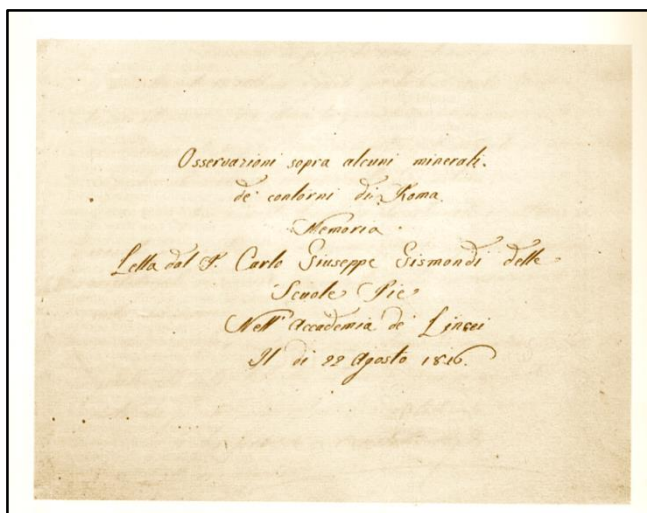 Osservazioni sopra alcuni minerali.
de' contorni di Roma
Memoria.
Letta dal P. Carlo Giuseppe Gismondi delle
Scuole Pie
Nell' Accademia de' Lincei
Il di 22 Agosto 1816.